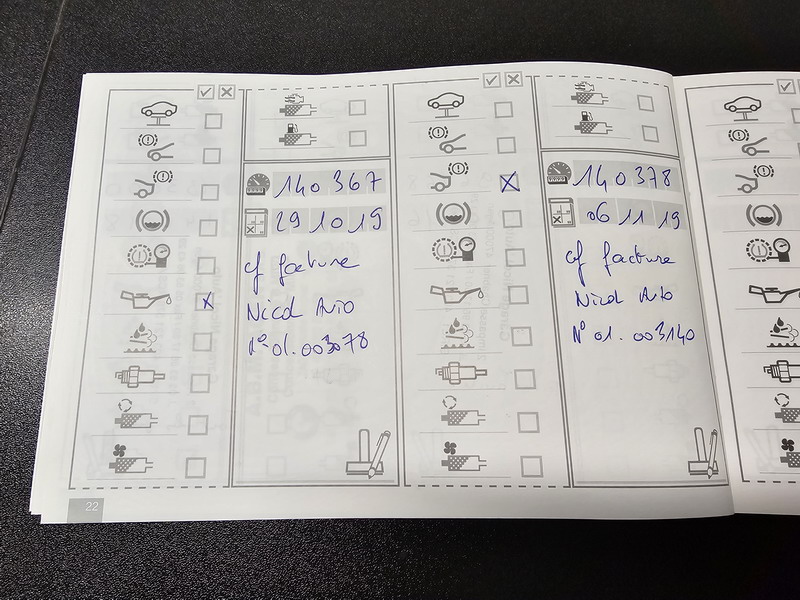 140 367
29 10 19
cf facture
Nicol Auto
N° 01.003078
140 378
06 11 19
cf facture
Nicol Auto
N° 01.003140
22